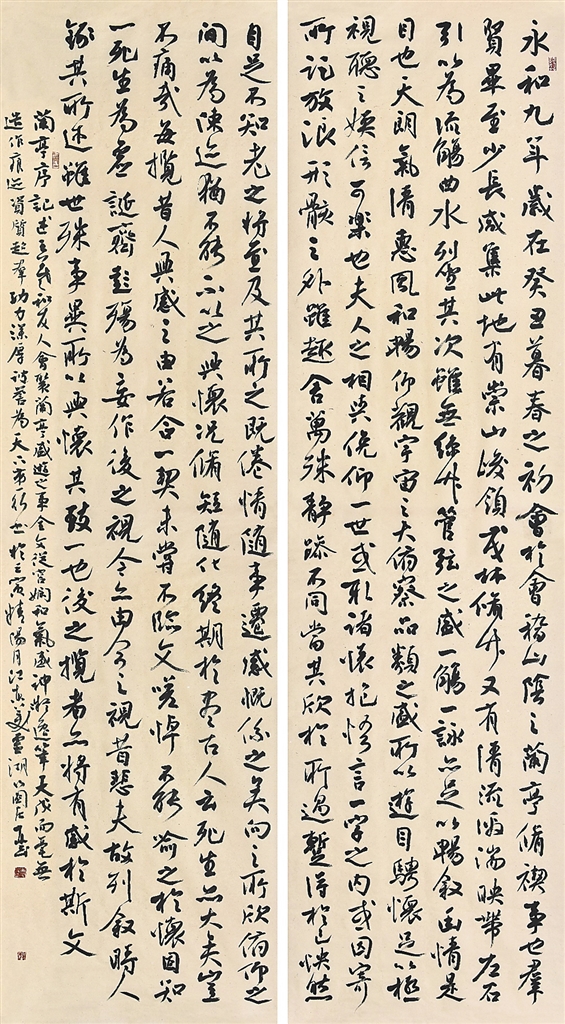 永和九年歲在癸丑暮春之初會於會稽山陰之蘭亭脩禊事也群
賢畢至少長咸集此地有崇山峻領茂林脩竹又有清流激湍映帶左右
引以為流觴曲水列坐其次雖無絲竹管弦之盛一觴一詠亦足以暢敘幽情是
日也天朗氣清惠風和暢仰觀宇宙之大俯察品類之盛所以遊目騁懷足以極
視聽之娛信可樂也夫人之相與俛仰一世或取諸懷抱悟言一室之內或因寄
所託放浪形骸之外雖趣舍萬殊靜躁不同當其欣於所遇蹔得於己怏然
自足不知老之將至及其所之既倦情隨事遷感慨係之矣向之所欣俯仰之
間以為陳迹猶不能不以之興懷況脩短隨化終期於盡古人云死生亦大矣豈
不痛哉每攬昔人興感之由若合一契未嘗不臨文嗟悼不能喻之於懷固知
一死生為虛誕齊彭殤為妄作後之視今亦由今之視昔悲夫故列敘時人
錄其所述雖世殊事異所以興懷其致一也後之攬者亦將有感於斯文
蘭亭序記述王羲和友人會聚蘭亭盛遊之事全文從容嫻和氣盛神凝逸筆天成而毫無
造作痕迹資質超群功力深厚被譽為天下行書於壬寅陽月江夏雲湖